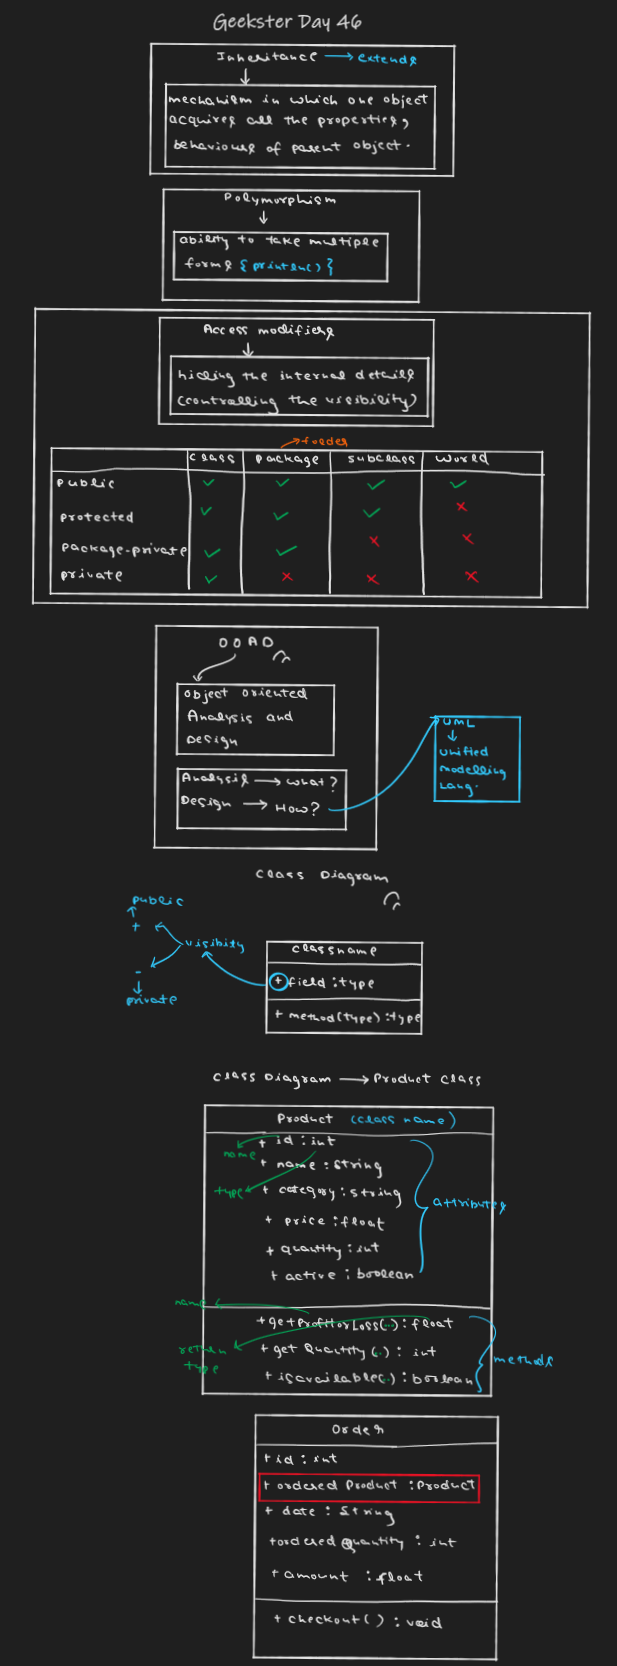 Geekster Day 46
Inheritance → extends
mechanism in which one object
acquires all the properties,
behaviours of parent object.
Polymorphism
ability to take multiple
forms {println()}
Access modifiers
hiding the internal details
(controlling the visibility)
→ folder
class package subclass world
public ✓ ✓ ✓ ✓
protected ✓ ✓ ✓ ×
package-private ✓ ✓ × ×
private ✓ × × ×
OOAD
object oriented
Analysis and
Design
Analysis → what?
Design → How?
UML
unified
modelling
Lang.
Class Diagram
public
+
visibity
-
private
classname
+ field : type
+ method(type) : type
Class Diagram → Product Class
Product (class name)
+ id : int
name
+ name : String
type
+ category : string
attributes
+ price : float
+ quantity : int
+ active : boolean
name
+ getProfitorLoss(..) : float
return
type
+ get Quantity(..) : int
methods
+ isavailable(..) : boolean
Order
+ id : int
+ ordered Product : Product
+ date : String
+ordered Quantity : int
+ amount : float
+ checkout( ) : void